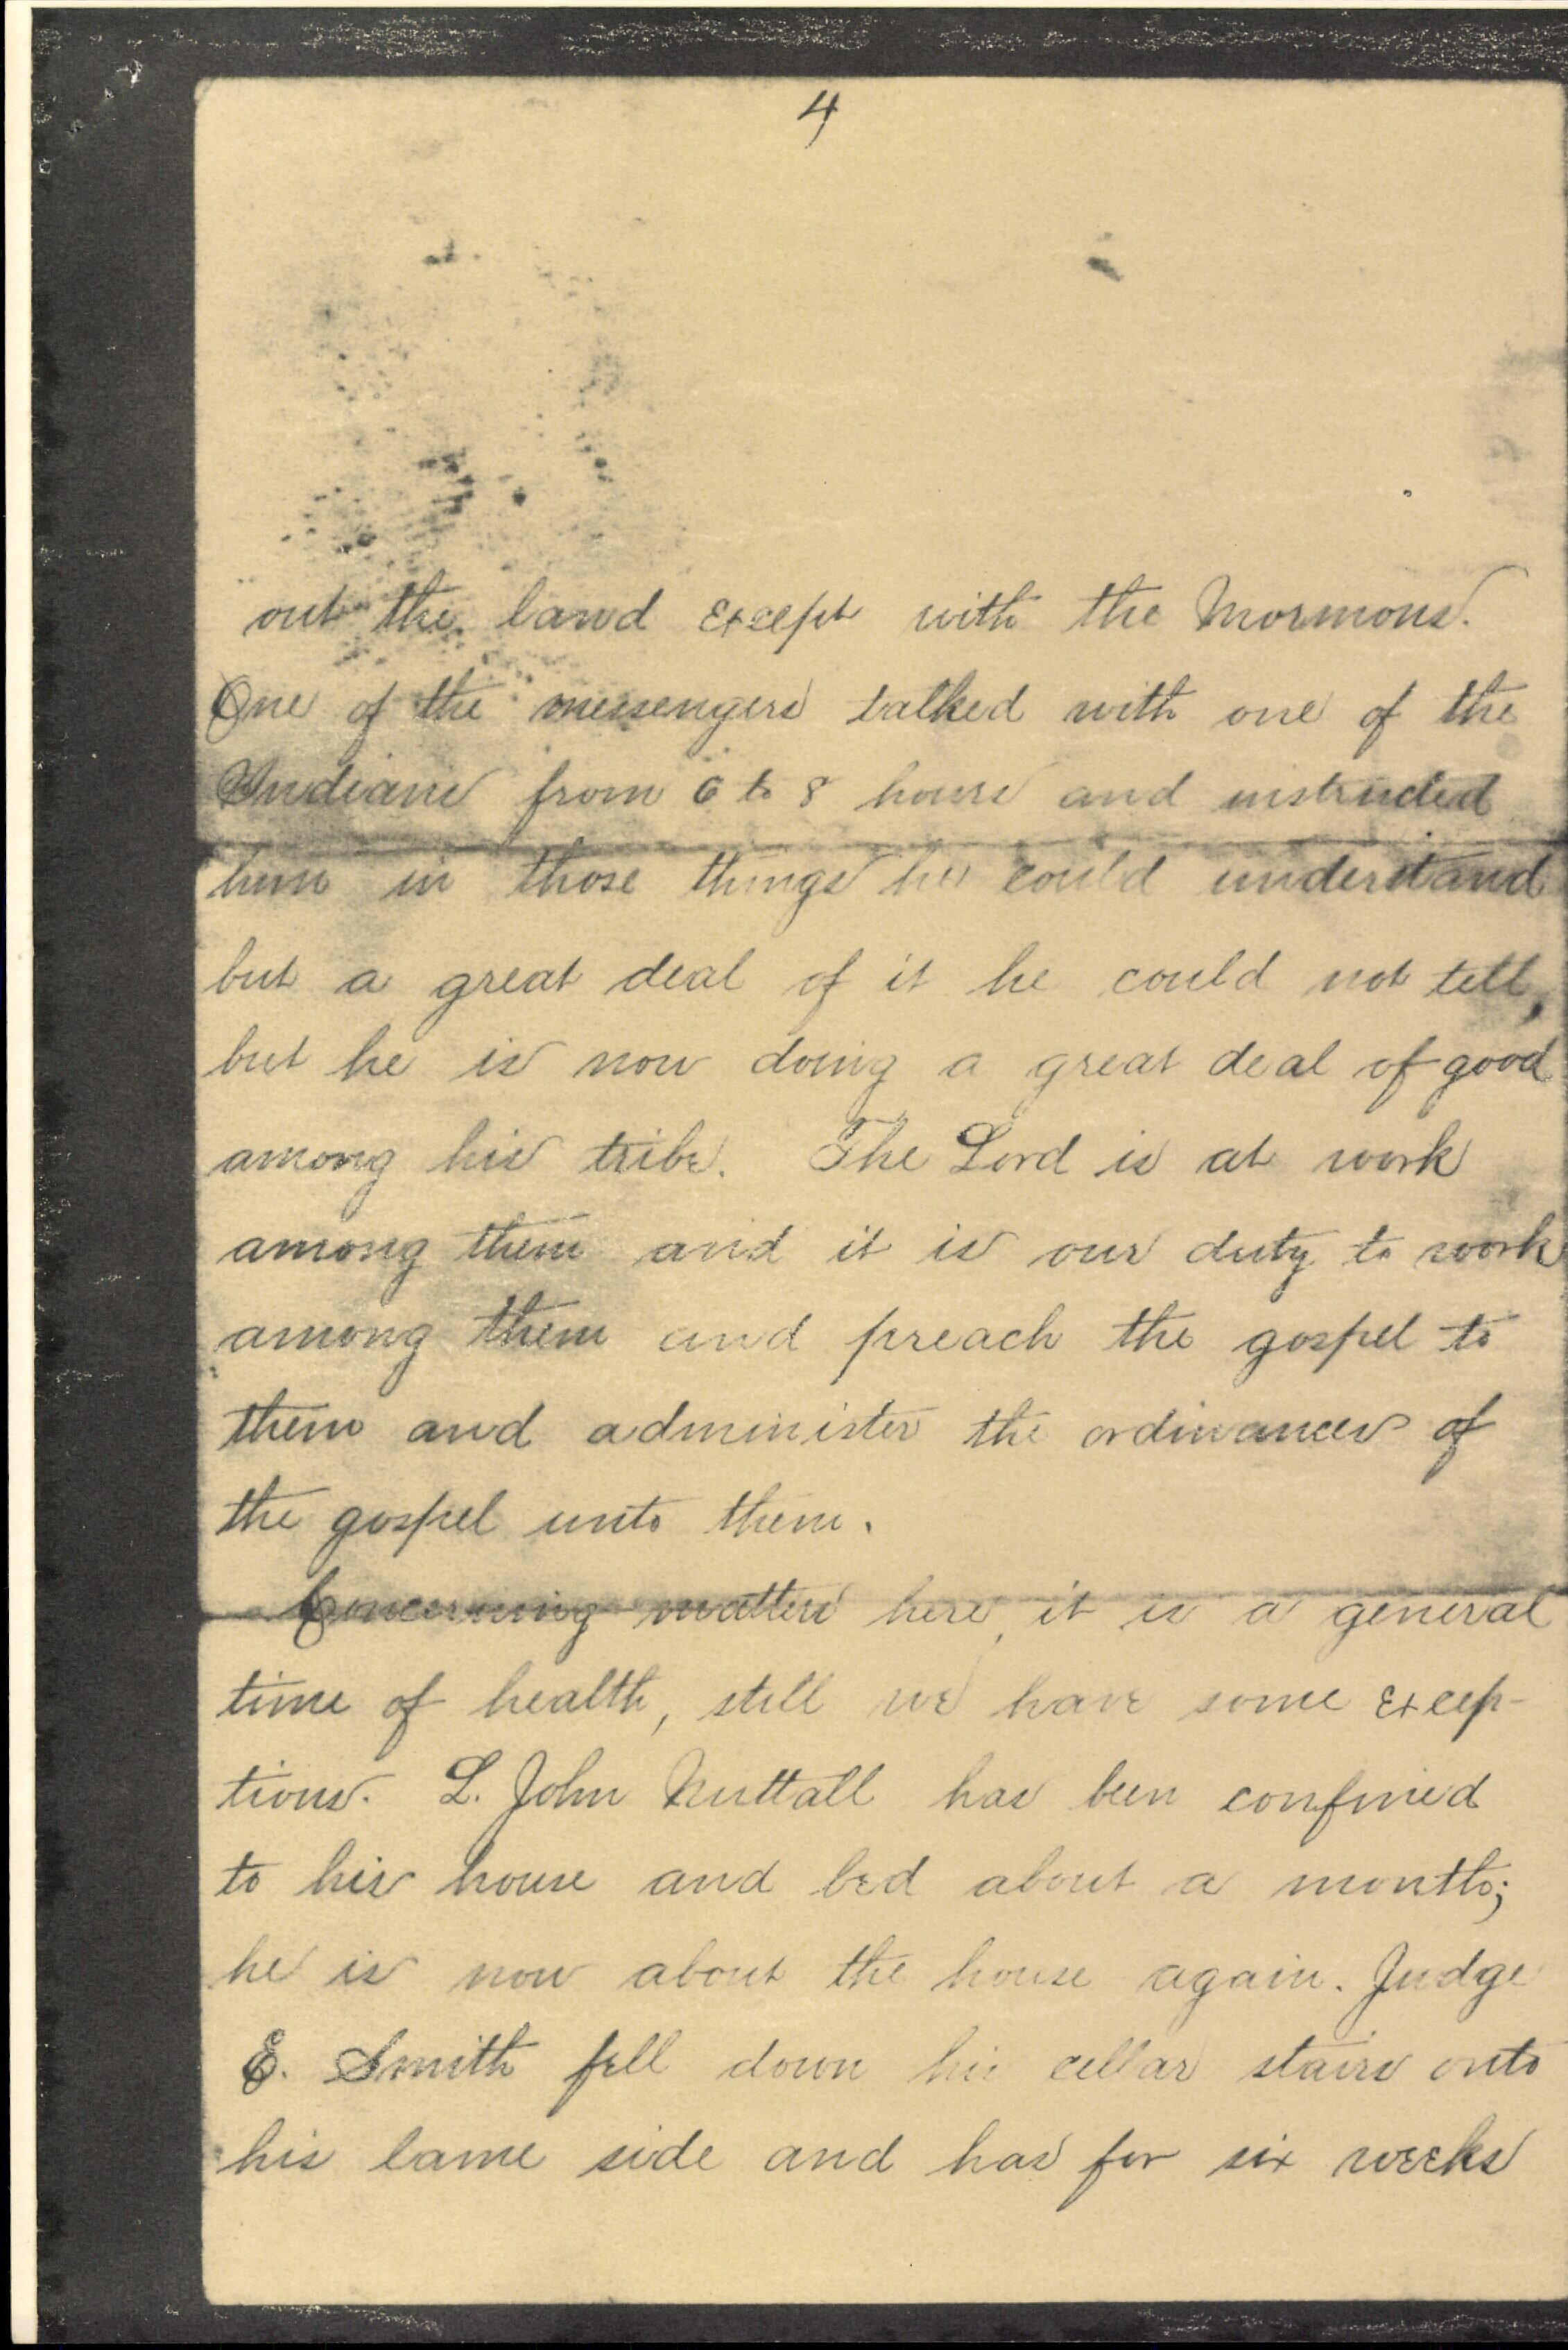 4
out the land except with the Mormons.
One of the messengers talked with one of the
Indians from 6 to 8 hours and instructed
him in those things he could understand
but a great deal of it he could not tell,
but he is now doing a great deal of good
among his tribe. The Lord is at work
among them and it is our duty to work
among them and preach the gospel to
them and administer the ordinances of
the gospel unto them.
Concerning matters here, it is a general
time of health, still we have some excep-
tions. L. John Nuttall has been confined
to his house and bed about a month;
he is now about the house again. Judge
E. Smith fell down his cellar stairs onto
his lame side and has for six weeks